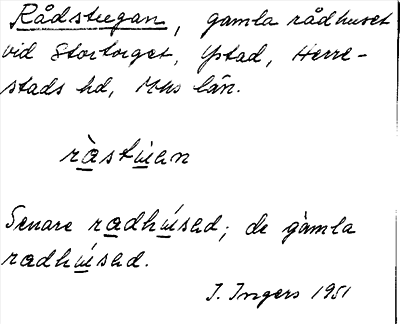 Rådstugan, gamla rådhuset
vid Stortorget, Ystad, Herre-
stads hd, Mhs län.
ràstúan
Senare radhúsed; de gàmla
radhúsed.
I. Ingers 1951